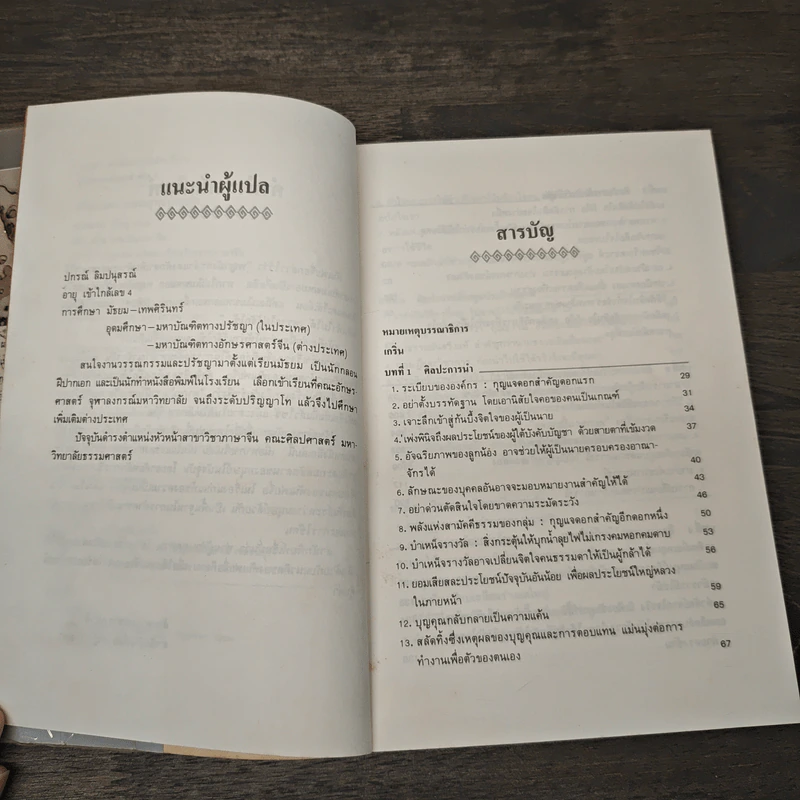 แนะนำผู้แปล
ปกรณ์ ลิมปนุสรณ์
อายุ เข้าใกล้เลข 4
การศึกษา มัธยม—เทพศิรินทร์
อุดมศึกษา—มหาบัณฑิตทางปรัชญา (ในประเทศ)
—มหาบัณฑิตทางอักษรศาสตร์จีน (ต่างประเทศ)
สนใจงานวรรณกรรมและปรัชญามาตั้งแต่เรียนมัธยม เป็นนักกลอน
ฝีปากเอก และเป็นนักทำหนังสือพิมพ์ในโรงเรียน เลือกเข้าเรียนที่คณะอักษร-
ศาสตร์ จุฬาลงกรณ์มหาวิทยาลัย จนถึงระดับปริญญาโท แล้วจึงไปศึกษา
เพิ่มเติมต่างประเทศ
ปัจจุบันดำรงตำแหน่งหัวหน้าสาขาวิชาภาษาจีน คณะศิลปศาสตร์ มหา-
วิทยาลัยธรรมศาสตร์
สารบัญ
หมายเหตุบรรณาธิการ
เกริ่น
บทที่ 1 ศิลปะการนำ
1. ระเบียบขององค์กร : กุญแจดอกสำคัญดอกแรก 29
2. อย่าตั้งบรรทัดฐาน โดยเอานิสัยใจคอของคนเป็นเกณฑ์ 31
3. เจาะลึกเข้าสู่ก้นบึ้งจิตใจของผู้เป็นนาย 34
4. เพ่งพินิจถึงผลประโยชน์ของผู้ใต้บังคับบัญชา ด้วยสายตาที่เข้มงวด 37
5. อัจฉริยภาพของลูกน้อง อาจช่วยให้ผู้เป็นนายครอบครองอาณา-
จักรได้ 40
6. ลักษณะของบุคคลอันอาจจะมอบหมายงานสำคัญให้ได้ 43
7. อย่าด่วนตัดสินใจโดยขาดความระมัดระวัง 46
8. พลังแห่งสามัคคีธรรมของกลุ่ม : กุญแจดอกสำคัญอีกดอกหนึ่ง 50
9. บำเหน็จรางวัล : สิ่งกระตุ้นให้บุกน้ำลุยไฟไม่เกรงคมหอกคมดาบ 53
10. บำเหน็จรางวัลอาจเปลี่ยนจิตใจคนธรรมดาให้เป็นผู้กล้าได้ 56
11. ยอมเสียสละประโยชน์ปัจจุบันอันน้อย เพื่อผลประโยชน์ใหญ่หลวง
ในภายหน้า 59
12. บุญคุณกลับกลายเป็นความแค้น 65
13. สลัดทิ้งซึ่งเหตุผลของบุญคุณและการตอบแทน แม่นมุ่งต่อการ
ทำงานเพื่อตัวของตนเอง 67